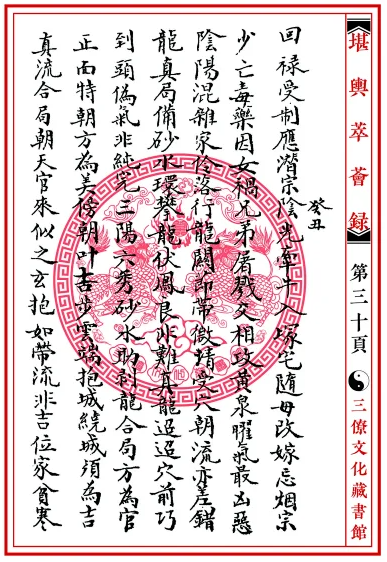 堪輿萃薈録
第三十頁
三僚文化藏書館
癸丑
回禄受制應潛宗陰光牽牛入嫁宅隨母改嫁忘烟宗
少亡毒藥因女禍兄弟屠戮交相攻黄泉曜氣最凶惡
陰陽混雜家伶落行龍闗節帶微精受穴朝流亦差錯
龍真局備砂水環攀龍伏鳳良非難真龍迢迢穴前巧
到頭偽氣非純完三陽六秀砂水助剥龍合局方為官
正面特朝方為美傍朝叶吉步雲端抱城繞城須為吉
真流合局朝天官來似之玄抱如帶流非吉位家貧寒